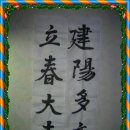 建陽多
立春大